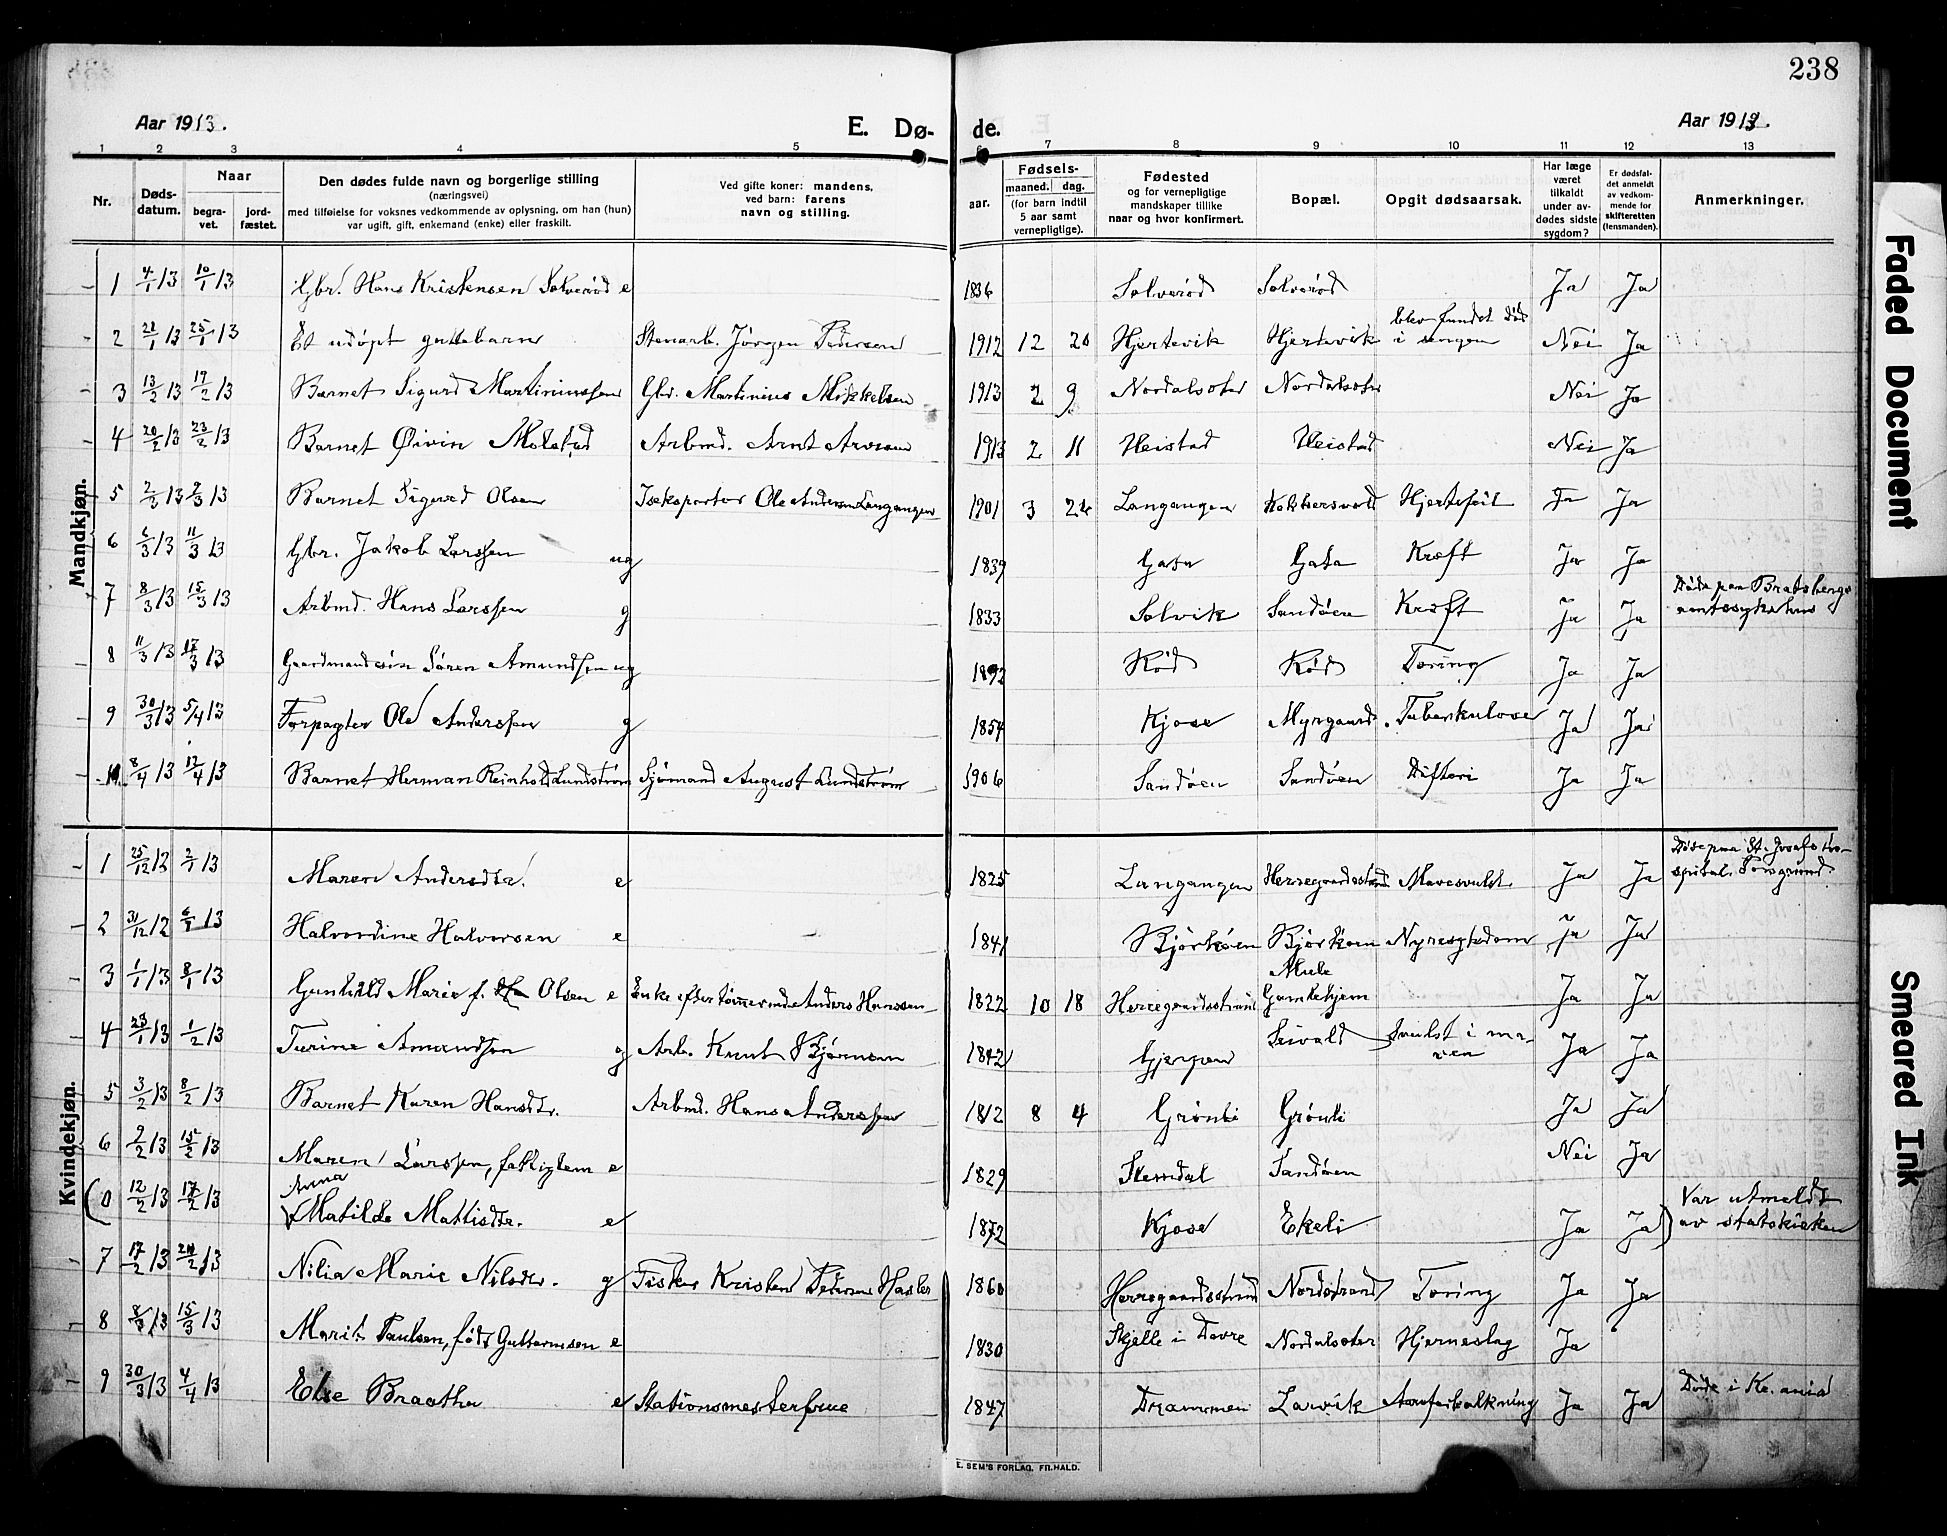 238
Aar 1913.
E. Dø-
de.
Aar 1913.
1 2 3 4 5 6 7 8 9 10 11 12 13
Nr.
Døds-
datum.
Naar
begra-
vet.
jord-
fæstet.
Den dødes fulde navn og borgerlige stilling
(næringsvei)
med tilføielse for voksnes vedkommende av oplysning, om han (hun)
var ugift, gift, enkemand (enke) eller fraskilt.
Ved gifte koner: mandens,
ved barn: farens
navn og stilling.
Fødsels-
aar.
maaned. dag.
(for barn indtil
5 aar samt
vernepligtige).
Fødested
og for vernepligtige
mandskaper tillike
naar og hvor konfirmert.
Bopæl.
Opgit dødsaarsak.
Har læge
været
tilkaldt
under av-
dødes sidste
sygdom?
Er dødsfal-
det anmeldt
av vedkom-
mende for
skifteretten
(lensmanden).
Anmerkninger.
Mandkjøn.
1 4/1 13 10/1 13 Gbr. Hans Kristensen Solverød e 1836 Solverød Solverød Ja Ja
2 21/1 13 25/1 13 Et udøpt guttebarn Stenarb. Jörgen Pedersen 1912 12 20 Hjertevik Hjertevik Blev fundet död
i sengen Nei Ja
3 13/2 13 17/2 13 Barnet Sigurd Martiniussen Gbr. Martinius Mikkelsen 1913 2 9 Nordalseter Nordalseter Nei Ja
4 20/2 13 23/2 13 Barnet Øivin Molstad Arbmd. Arnt 1913 2 11 Heistad Heistad Nei Ja
5 2/3 13 9/3 13 Barnet Sigurd Olsen Iseksportør Ole Andersen Langangen 1901 3 Langangen Kokkersvold Hjertefeil Ja Ja
6 6/3 13 11/3 13 Gbr. Jakob Larssen ug 1839 Gata Gata Kræft Ja Ja
7 8/3 13 15/3 13 Arbmd. Hans Larssen g 1833 Solvik Sandöen Kræft Ja Ja Döde paa Bratsbergs
amtssykehus
8 11/3 13 17/3 13 Gaardmandssön Sören Amundsen ug 1892 Röd Röd Tæring Ja Ja
9 30/3 13 5/4 13 Forpagter Ole Anderssen g 1854 Kjose Myrgaard Tuberkulose Ja Ja
10. 8/4 13 12/4 13 Barnet Herman Reinhold Lundström Sjömand August Lundström 1906 Sandöen Sandöen Difteri Ja Ja
Kvindekjøn.
1 25/12 12 2/1 13 Maren Andersdtr. e 1825 Langangen Herregaardsstrand Mavesvulst Ja Ja Döde paa St. Josefs Ho-
spital. Porsgrund.
2 31/12 12 6/1 13 Halvordine Halvorsen e 1841 Björköen Björköen Nyresygdom Ja Ja
3 1/1 13 8/1 13 Gunhild Marie f. Olsen e Enke efter tømmermd. Anders Hanssen 1822 10 18 Herregaardsstrand Mule
Gamlehjem Ja Ja
4 23/1 13 1/2 13 Turine Amundsen g Arb. Knut Björnsen 1842 Gjerpen Seivald Svulst i ma-
ven Ja Ja
5 3/2 13 8/2 13 Barnet Karen Hansdtr. Arbmd. Hans Anderssen 1912 8 4 Grönli Grönli Ja Ja
6 9/2 13 15/2 13 Maren Larssen, fattiglem e 1829 Stemdal Sandöen Nei Ja
(0 12/2 13 17/2 13 Anna
Matilde Mattisdtr. e 1872 Kjose Ekeli Ja Ja) Var utmeldt
av statskirken
7 17/2 13 24/2 13 Nilia Marie Nilsdtr. g Fisker Kristen Pedersen Hasler 1860 Herregaardsstrand Nordstrand Tæring Ja Ja
8 8/3 13 15/3 13 Marit Paulsen, født Guttormsen e 1830 Skjelle i Dovre Nordalseter Hjerneslag Ja
9 30/3 13 4/4 13 Else Braathu e Stationsmesterfrue 1847 Drammen Larvik Aareforkalkning Ja Ja Døde i Kr.ania
E. SEM'S FORLAG, FR.HALD.
Faded Document
Smeared Ink